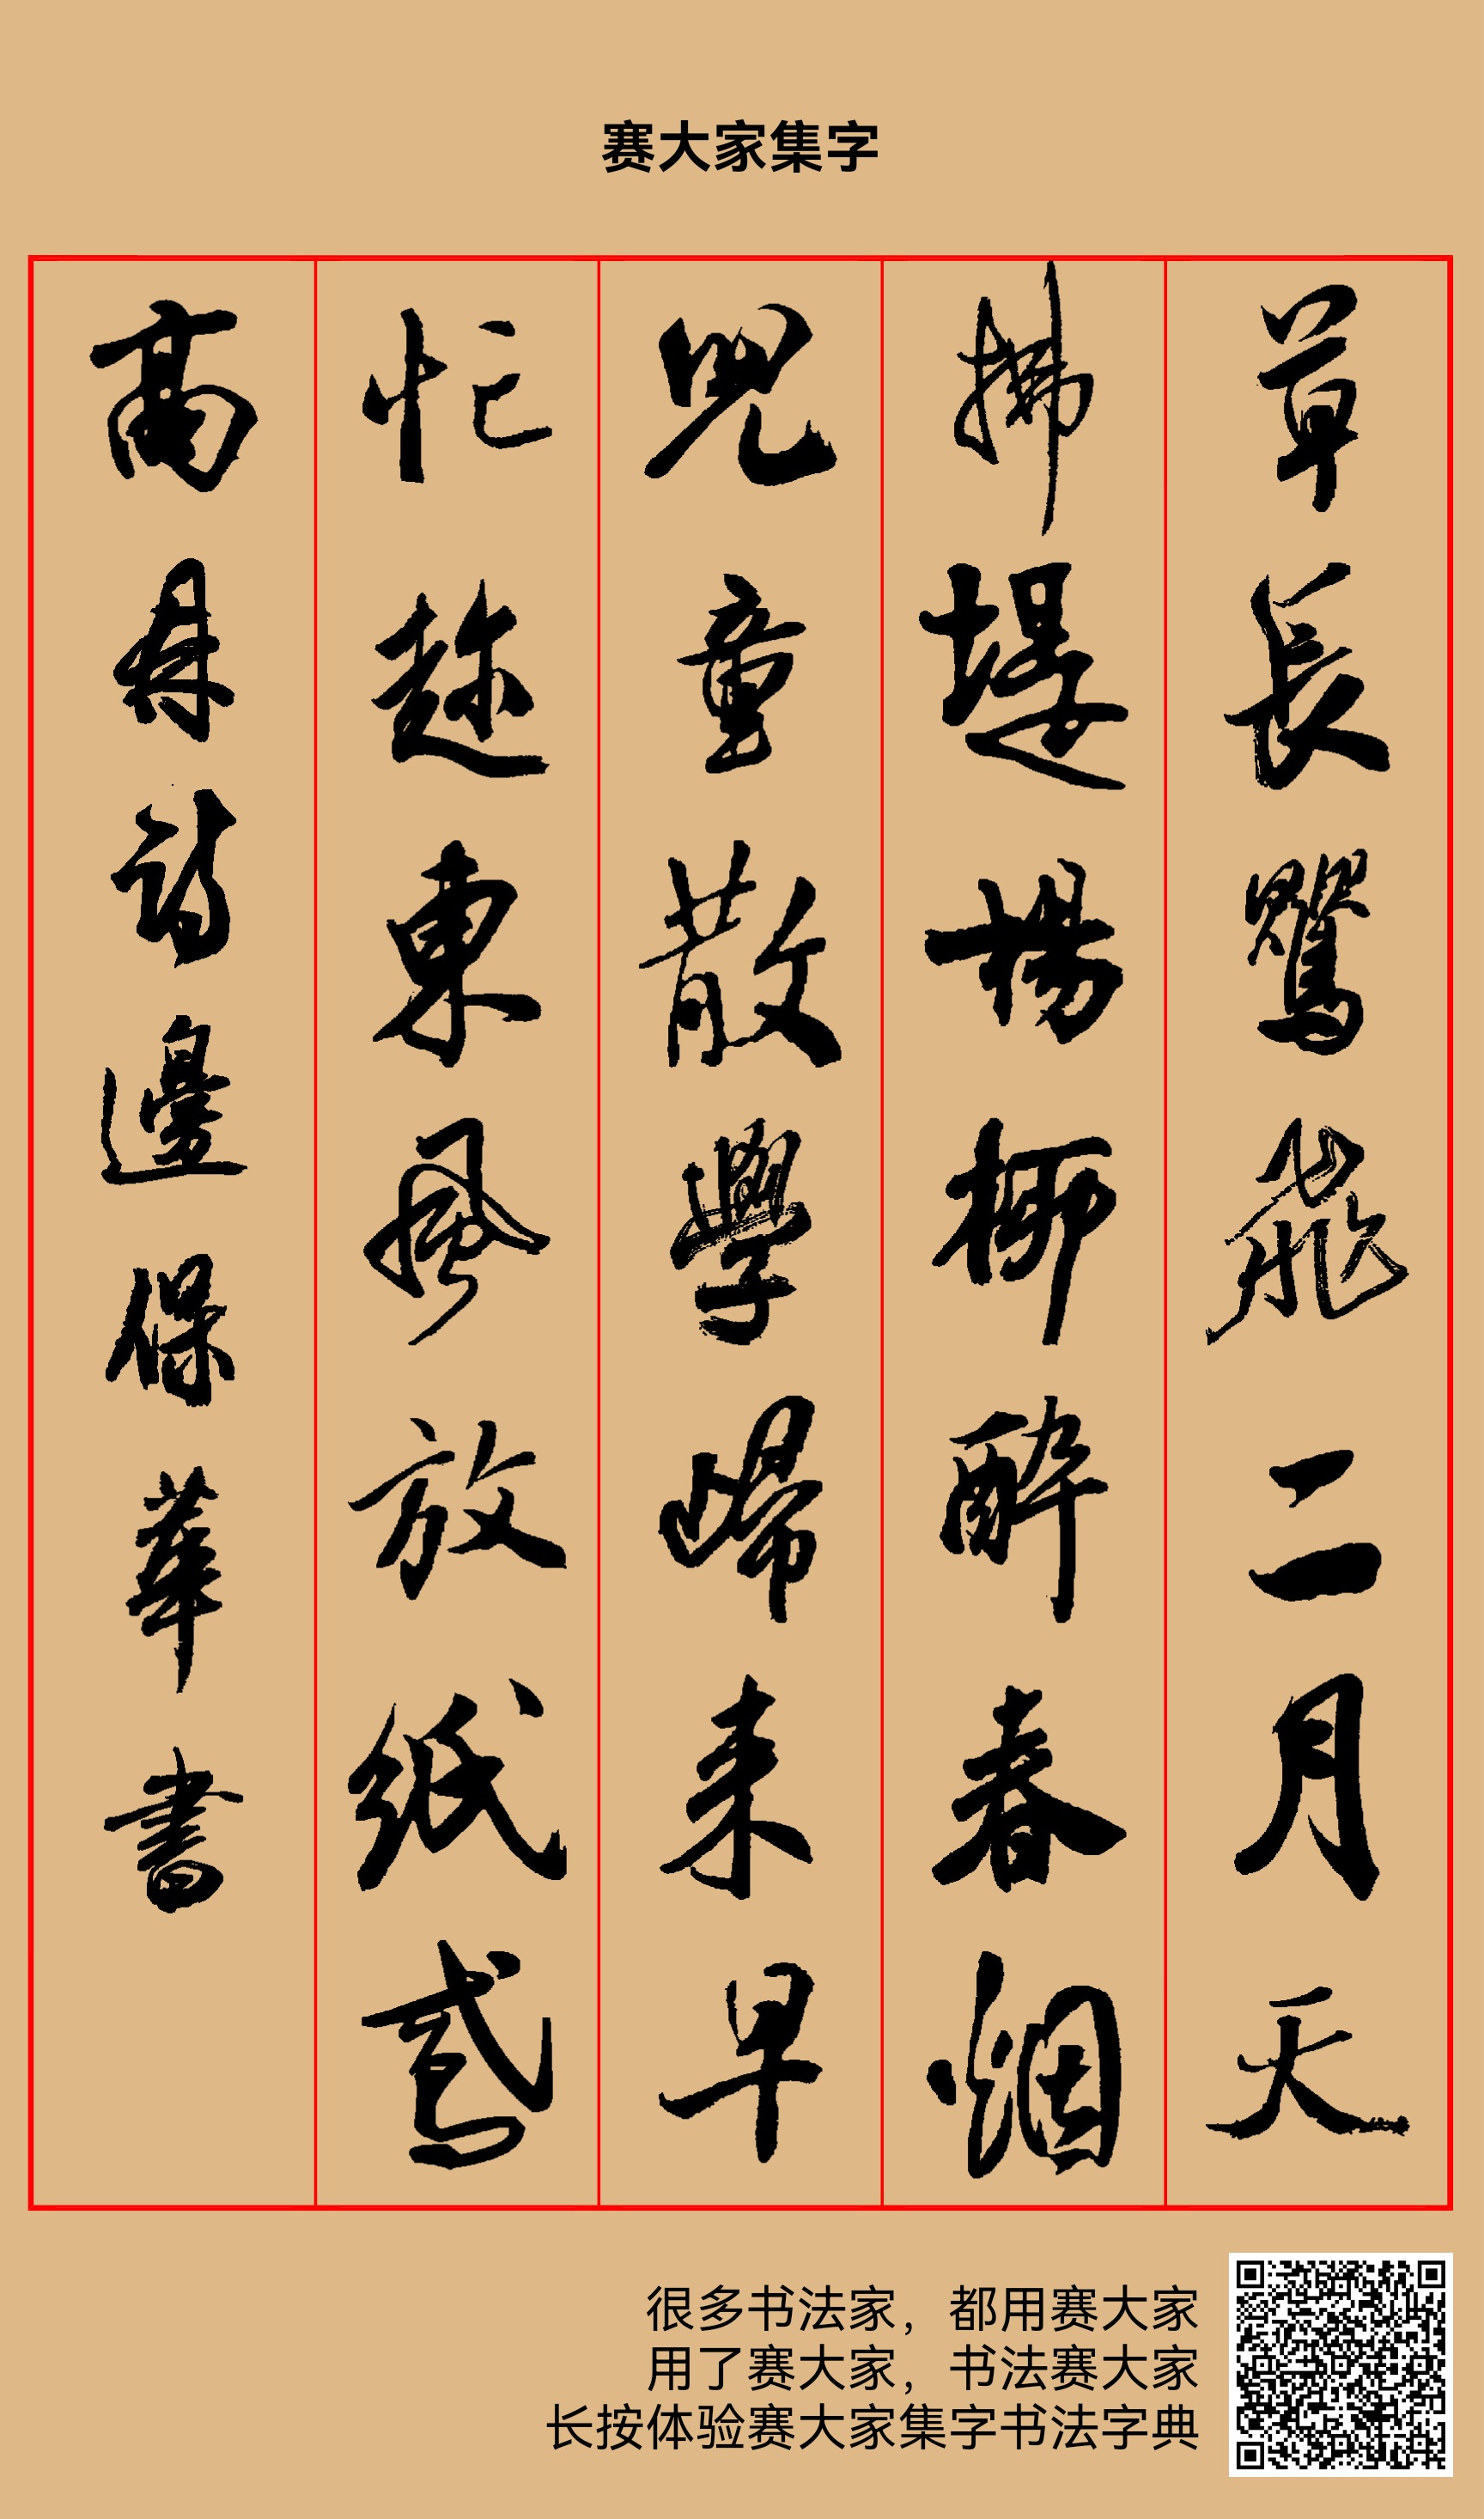 赛大家集字
草長鶯飛二月天
拂堤楊柳醉春烟
兒童散學歸来早
忙趁東風放紙鳶
高鼎詩邊保華書
很多书法家，都用赛大家
用了赛大家，书法赛大家
长按体验赛大家集字书法字典